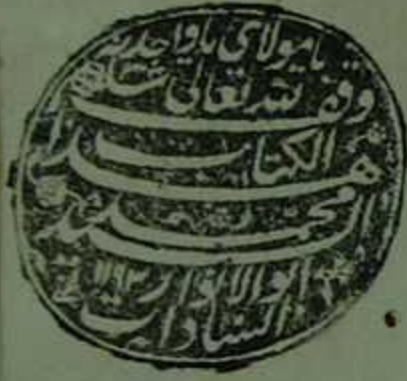 يا مولاي يا واحد يا
وقف لله تعالى
هذا الكتاب
السيد محمد
ابو الانوار
السادات